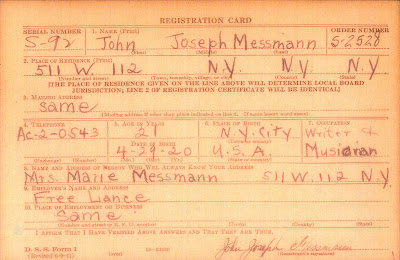 REGISTRATION CARD
SERIAL NUMBER 1. NAME (Print) ORDER NUMBER
S-92 John Joseph Messmann S-2528
(First) (Middle) (Last)
2. PLACE OF RESIDENCE (Print)
511 W. 112 N.Y. N.Y. N.Y.
(Number and street) (Town, township, village, or city) (County) (State)
[THE PLACE OF RESIDENCE GIVEN ON THE LINE ABOVE WILL DETERMINE LOCAL BOARD
JURISDICTION; LINE 2 OF REGISTRATION CERTIFICATE WILL BE IDENTICAL]
3. MAILING ADDRESS
same
[Mailing address if other than place indicated on line 2. If same insert word same]
4. TELEPHONE 5. AGE IN YEARS 6. PLACE OF BIRTH 7. OCCUPATION
Ac-2-0543 21 N.Y. City Writer &
DATE OF BIRTH (Town or county) Musician
4-29-20 U.S.A.
(Exchange) (Number) (Mo.) (Day) (Yr.) (State or country)
8. NAME AND ADDRESS OF PERSON WHO WILL ALWAYS KNOW YOUR ADDRESS
Mrs. Marie Messmann 511 W. 112 N.Y.
9. EMPLOYER'S NAME AND ADDRESS
Free Lance
10. PLACE OF EMPLOYMENT OR BUSINESS
Same
(Number and street or R. F. D. number) (Town) (County) (State)
I AFFIRM THAT I HAVE VERIFIED ABOVE ANSWERS AND THAT THEY ARE TRUE.
D. S. S. Form 1 John Joseph Messmann
(Revised 6-9-41) (Registrant's signature)